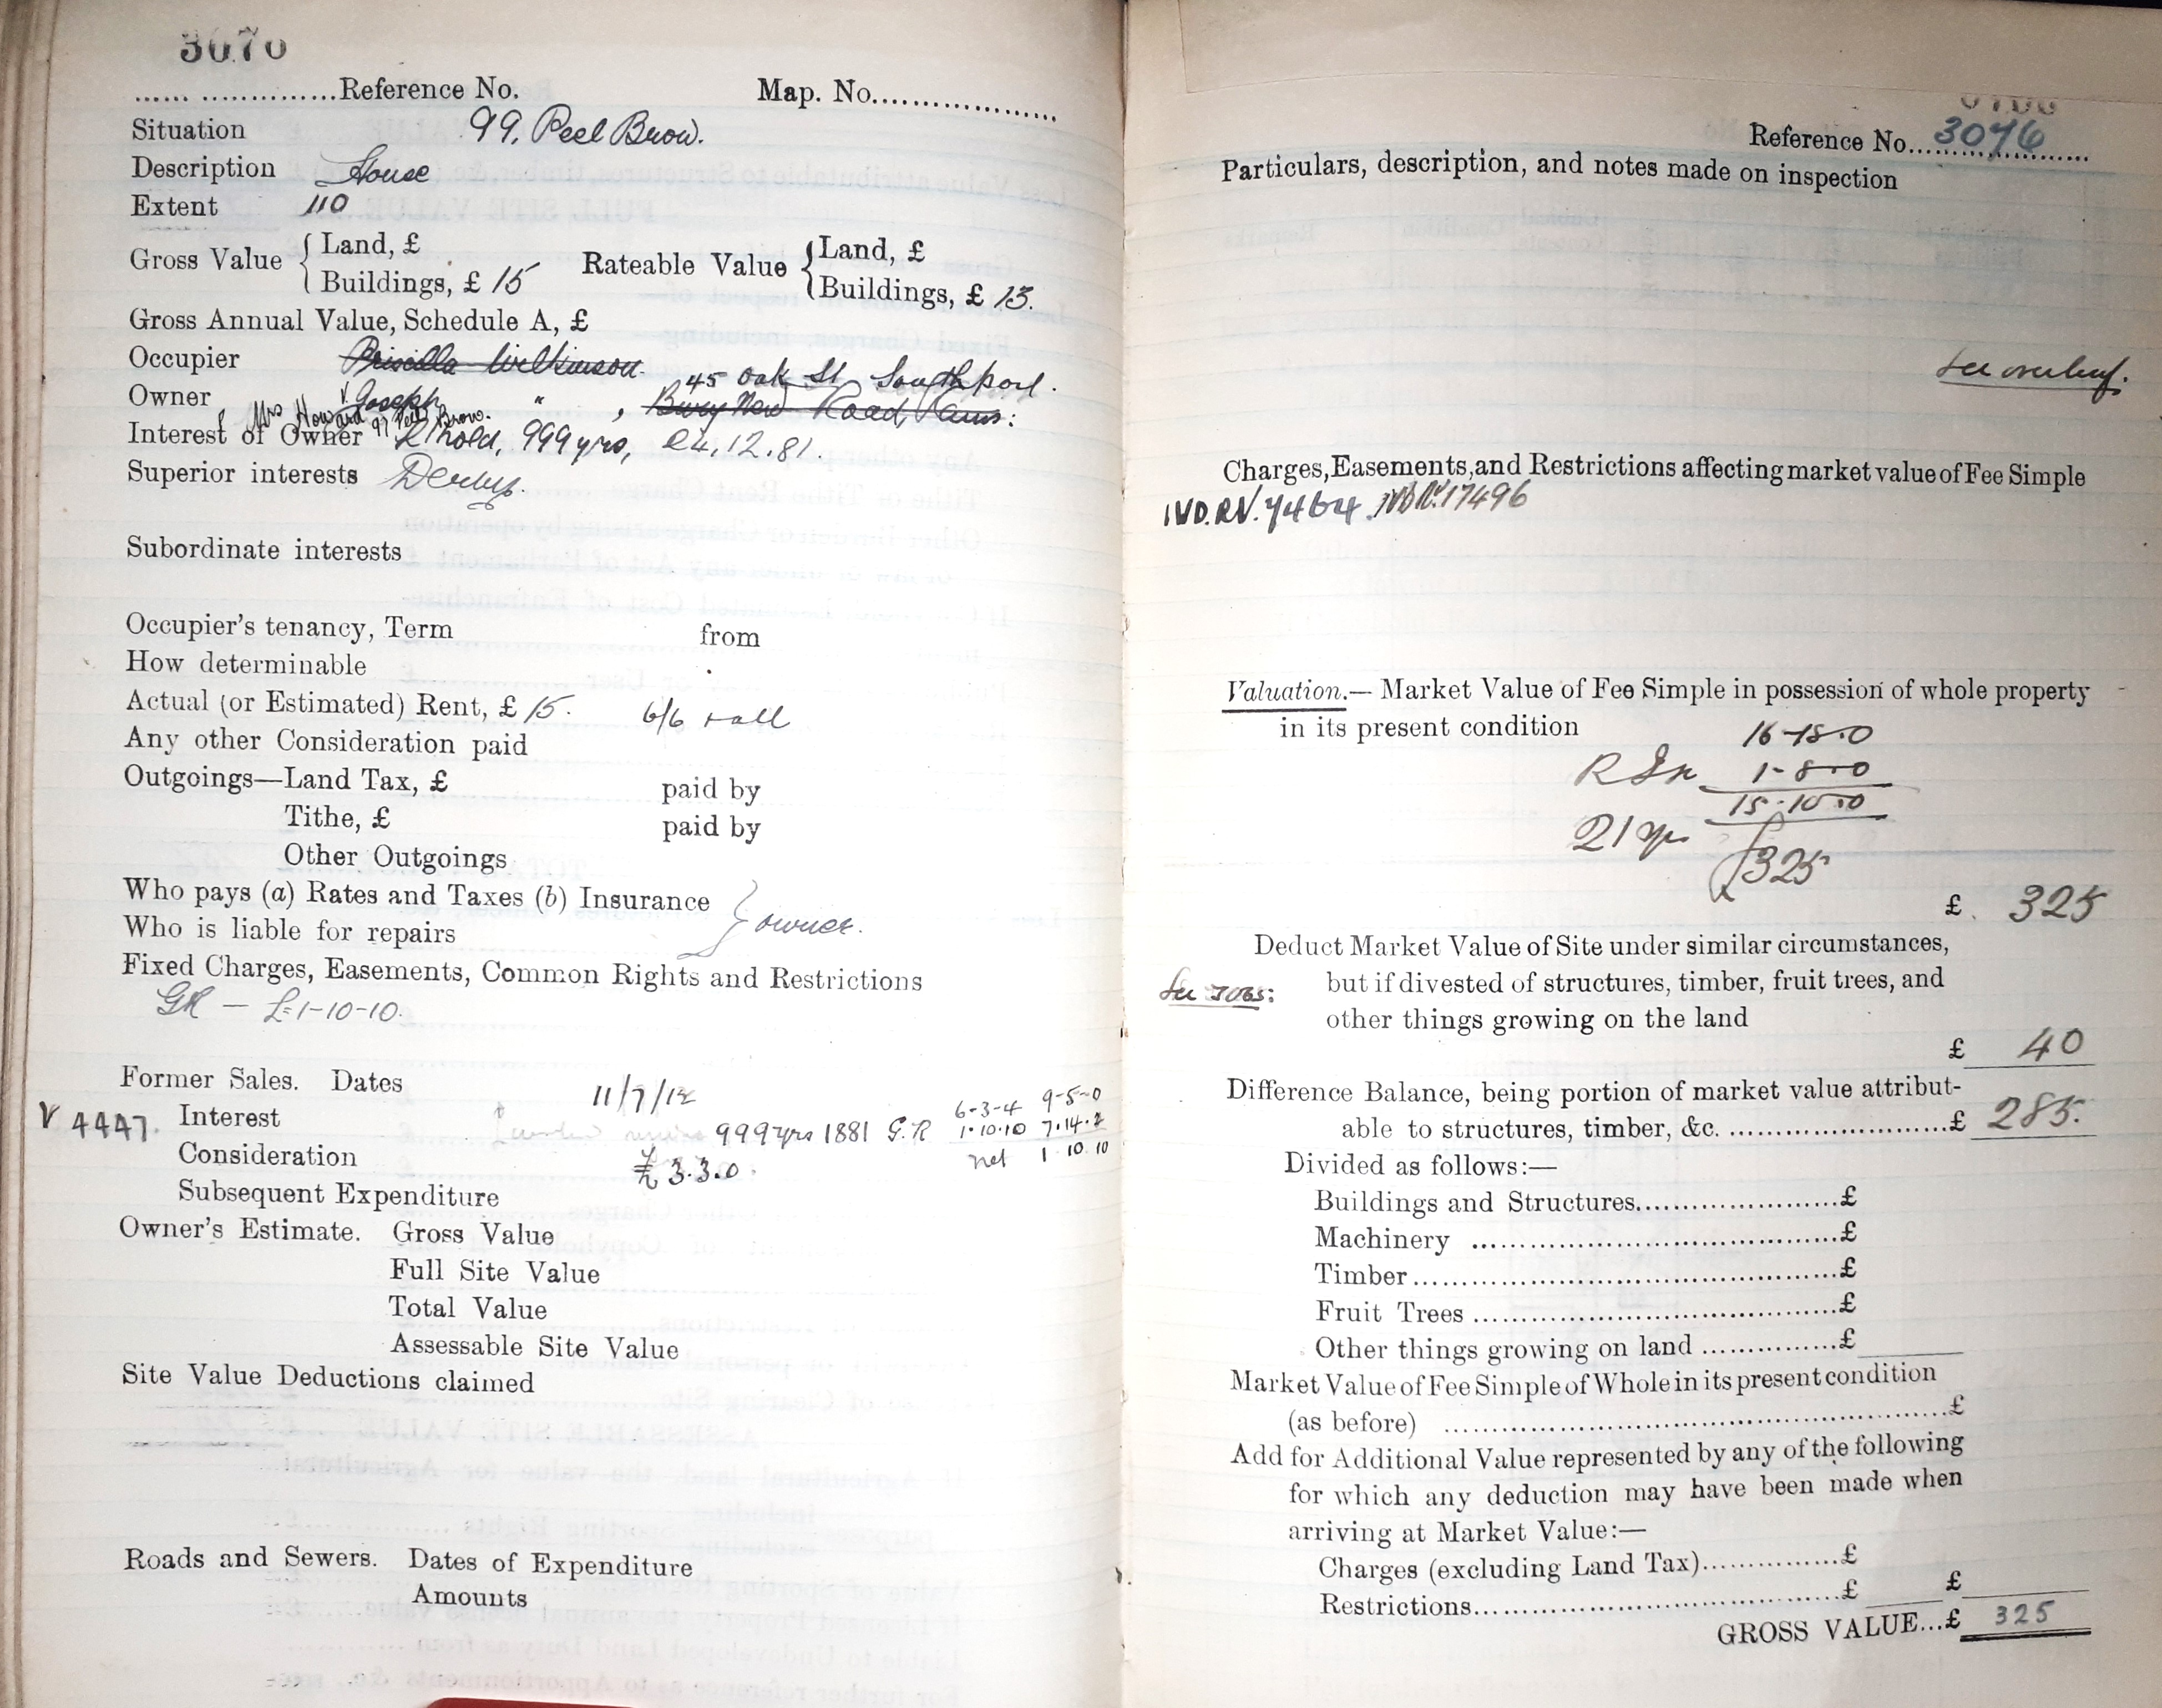 3070
...... ..............Reference No. Map. No...................
Situation 99, Peel Brow.
Description House
Extent 110
Gross Value { Land, £ Rateable Value { Land, £
Buildings, £ 15 Buildings, £ 13.
Gross Annual Value, Schedule A, £
Occupier Priscilla Wilkinson
45 Oak St Southport.
Owner Joseph " , Bury New Road,
Mrs Howard 97 Peel Brow.
Interest of Owner L'hold, 999 yrs, 24.12.81.
Superior interests Derby.
Subordinate interests
Occupier's tenancy, Term from
How determinable
Actual (or Estimated) Rent, £ 15. 6/6 + all
Any other Consideration paid
Outgoings—Land Tax, £ paid by
Tithe, £ paid by
Other Outgoings
Who pays (a) Rates and Taxes (b) Insurance } owner.
Who is liable for repairs
Fixed Charges, Easements, Common Rights and Restrictions
GR — £1-10-10.
Former Sales. Dates 11/7/12
6-3-4 9-5-0
V 4447. Interest 999 yrs 1881 G.R 1.10.10 7.14.2
net 1 10 10
Consideration £ 3.3.0
Subsequent Expenditure
Owner's Estimate. Gross Value
Full Site Value
Total Value
Assessable Site Value
Site Value Deductions claimed
Roads and Sewers. Dates of Expenditure
Amounts
Reference No. 3076
Particulars, description, and notes made on inspection
See overleaf.
Charges, Easements, and Restrictions affecting market value of Fee Simple
IVD.RV. 7464. 17496
Valuation.— Market Value of Fee Simple in possession of whole property
in its present condition 16-18.0
1-8-0
15-10-0
21 yp
£325
£ 325
Deduct Market Value of Site under similar circumstances,
See 3065: but if divested of structures, timber, fruit trees, and
other things growing on the land
£ 40
Difference Balance, being portion of market value attribut-
able to structures, timber, &c. ........................£ 285.
Divided as follows:—
Buildings and Structures......................£
Machinery ......................................£
Timber............................................£
Fruit Trees ......................................£
Other things growing on land ..............£
Market Value of Fee Simple of Whole in its present condition
(as before) ....................................................£
Add for Additional Value represented by any of the following
for which any deduction may have been made when
arriving at Market Value:—
Charges (excluding Land Tax)..............£
Restrictions......................................£ £
GROSS VALUE...£ 325